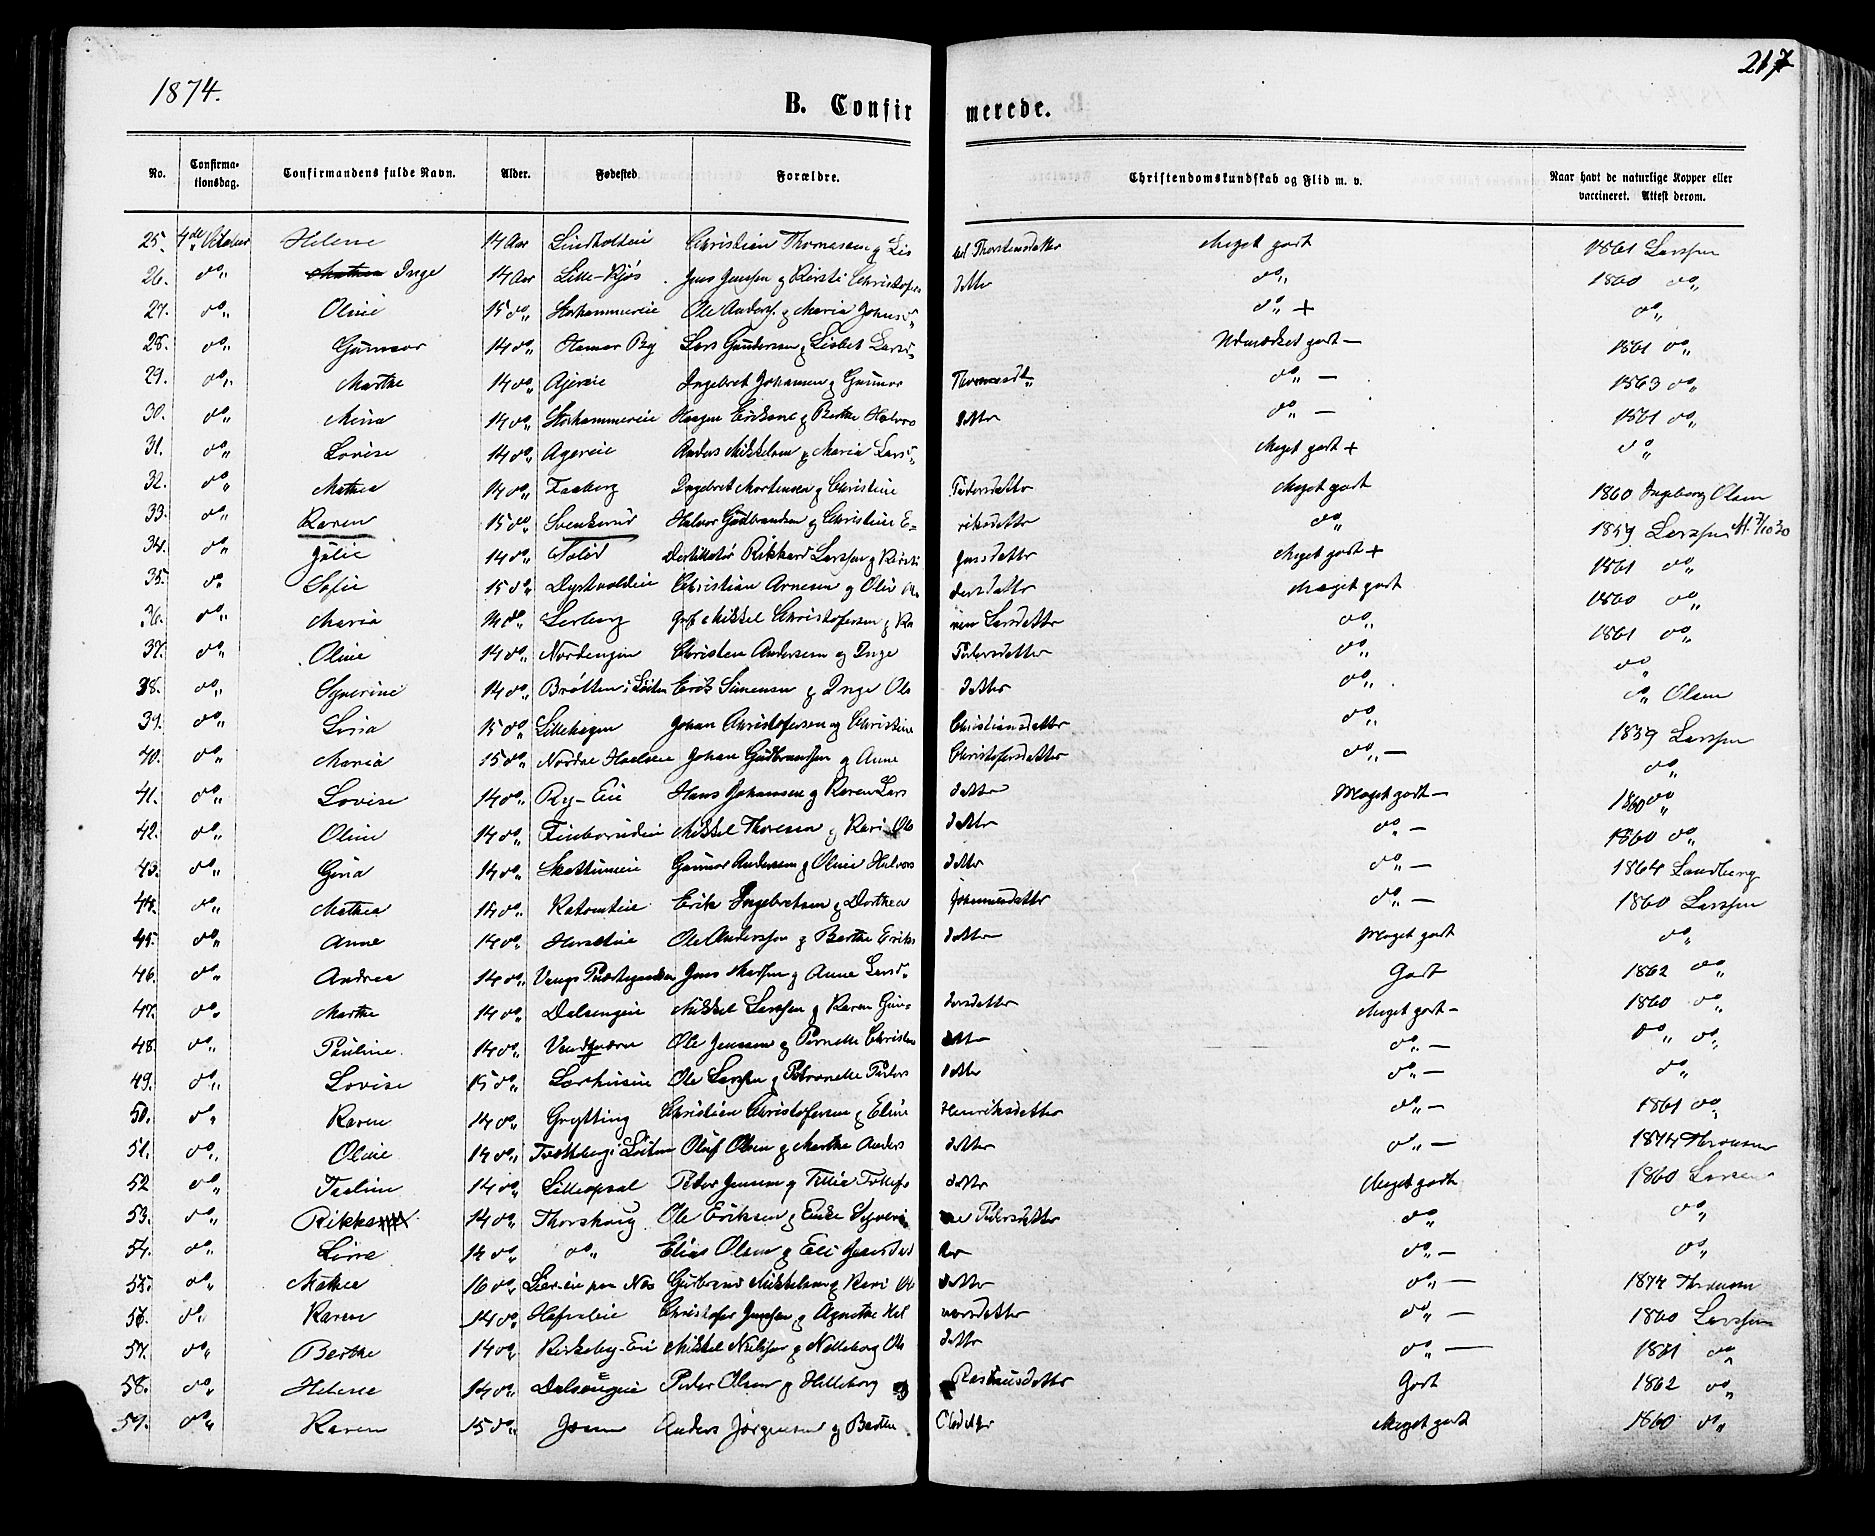 1874.
217
B. Confirmerede.
No. Confirmationsdag. Confirmandens fulde Navn. Alder. Fødested. Forældre. Christendomskundskab og Flid m. v. Naar havt de naturlige Kopper eller vaccineret. Attest derom.
25. 4de October Helene 14 Aar Christian Thomassen og Lisbet Thorstensdatter Meget godt 1861 Larssen
26. do Inge 14 Aar Lille-Kjøs Jens Jenssen og Kersti Christofersdatter do 1860 do
27. do Oline 15 do Storhammereie Ole Anders. og Maria Johnsd. do + do
28. do Gunnor 14 do Hamar By Lars Gundersen og Lisbet Larsd. Udmærket godt - 1861 do
29. do Marthe 14 do Ajereie Ingebret Johansen og Gunnor Thomasdt. do - 1863 do
30. do Mina 14 do Storhammereie Haagen Eriksen og Berthe Halvorsdatter do - 1861 do
31. do Lovise 14 do Agereie Anders Mikkelsen og Maria Larsd. Meget godt + do
32. do Mathea 14 do Faaberg Ingebret Mortensen og Christine Pedersdatter Meget godt 1860 Ingeborg Olsen
33. do Karen 15 do Svenkerud Halvor Gudbrandsen og Christine Eriksdatter do 1859 Larssen
34. do Julie 14 do Destillatør Rikkard Larssen og Kersti Jensdatter Meget godt + 1861 do
35. do Sofie 15 do Dystvoldeie Christian Arnesen og Olia Andersdatter Meget godt 1860 do
36. do Maria 14 do Lerberg Mikkel Christofersen og Karen Larsdatter do 1861 do
37. do Oline 14 do Nordengen Christen Andersen og Inge Pedersdatter do do
38. do Syverine 14 do Brøtten i Løiten Erik Simensen og Inge Olsdatter do do Olsen
39. do Lina 15 do Lillehagen Johan Christofersen og Christine Christiansdatter do 1859 Larssen
40. do Maria 15 do Nordre Johan Gudbrandsen og Anne Christofersdatter do - do
41. do Lovise 14 do Ry-Eie Hans Johansen og Karen Larsdatter Meget godt - 1860 do
42. do Oline 14 do Finborudeie Mikkel Thoresen og Kari Olsdatter do - 1860 do
43. do Gina 14 do Skattumeie Gunnor Andersen og Oline Halvorsdatter do - 1864 Sandberg
44. do Mathea 14 do Erik Ingebretsen og Dorthea Johannesdatter do - 1860 Larssen
45. do Anne 14 do Ole Anderssen og Berthe Eriksdatter Meget godt do
46. do Andrea 14 do Vangs Præstegaarden Jens Madsen og Anne Larsd. Godt 1862 do
47. do Marthe 14 do Dalsengeie Mikkel Larssen og Karen Gundersdatter Meget godt - 1860 do
48. do Pauline 14 do Vendkværn Ole Jenssen og Pernelle Christensdatter do - do do
49. do Lovise 15 do Ole Larssen og Petronelle Pedersdatter do - do
50. do Karen 14 do Grytting Christian Christofersen og Eline Henriksdatter do - 1861 do
51. do Oline 14 do Tvættberg i Løiten Oluf Olsen og Marthe Andersdatter do - 1874 Thronsen
52 do Pauline 14 do Lilleopsal Peder Jensen og Tellefsdatter Meget godt 1860 Larssen
53. do Rikka 14 do Thorshoug Ole Eriksen og Syverine Pedersdatter do do
54. do Line 14 do do Elias Olsen og Eli Jensdatter do - do
55. do Mathea 16 do paa Næs Gudbrand Mikkelsen og Kari Olsdatter do - 1874 Thronsen
56. do Karen 14 do Hofsleie Christofer Jenssen og Agnethe Halvorsdatter do - 1860 Larssen
57. do Berthe 14 do Kirkeby-Eie Mikkel Nielsen og Nilleborg Olsdatter do - 1871 do
58. do Helene 14 do Dalsengeie Peder Olsen og Hilleborg Rasmusdatter Godt 1862 do
59. do Karen 15 do Anders Jørgensen og Berthe Olsdatter Meget godt 1860 do